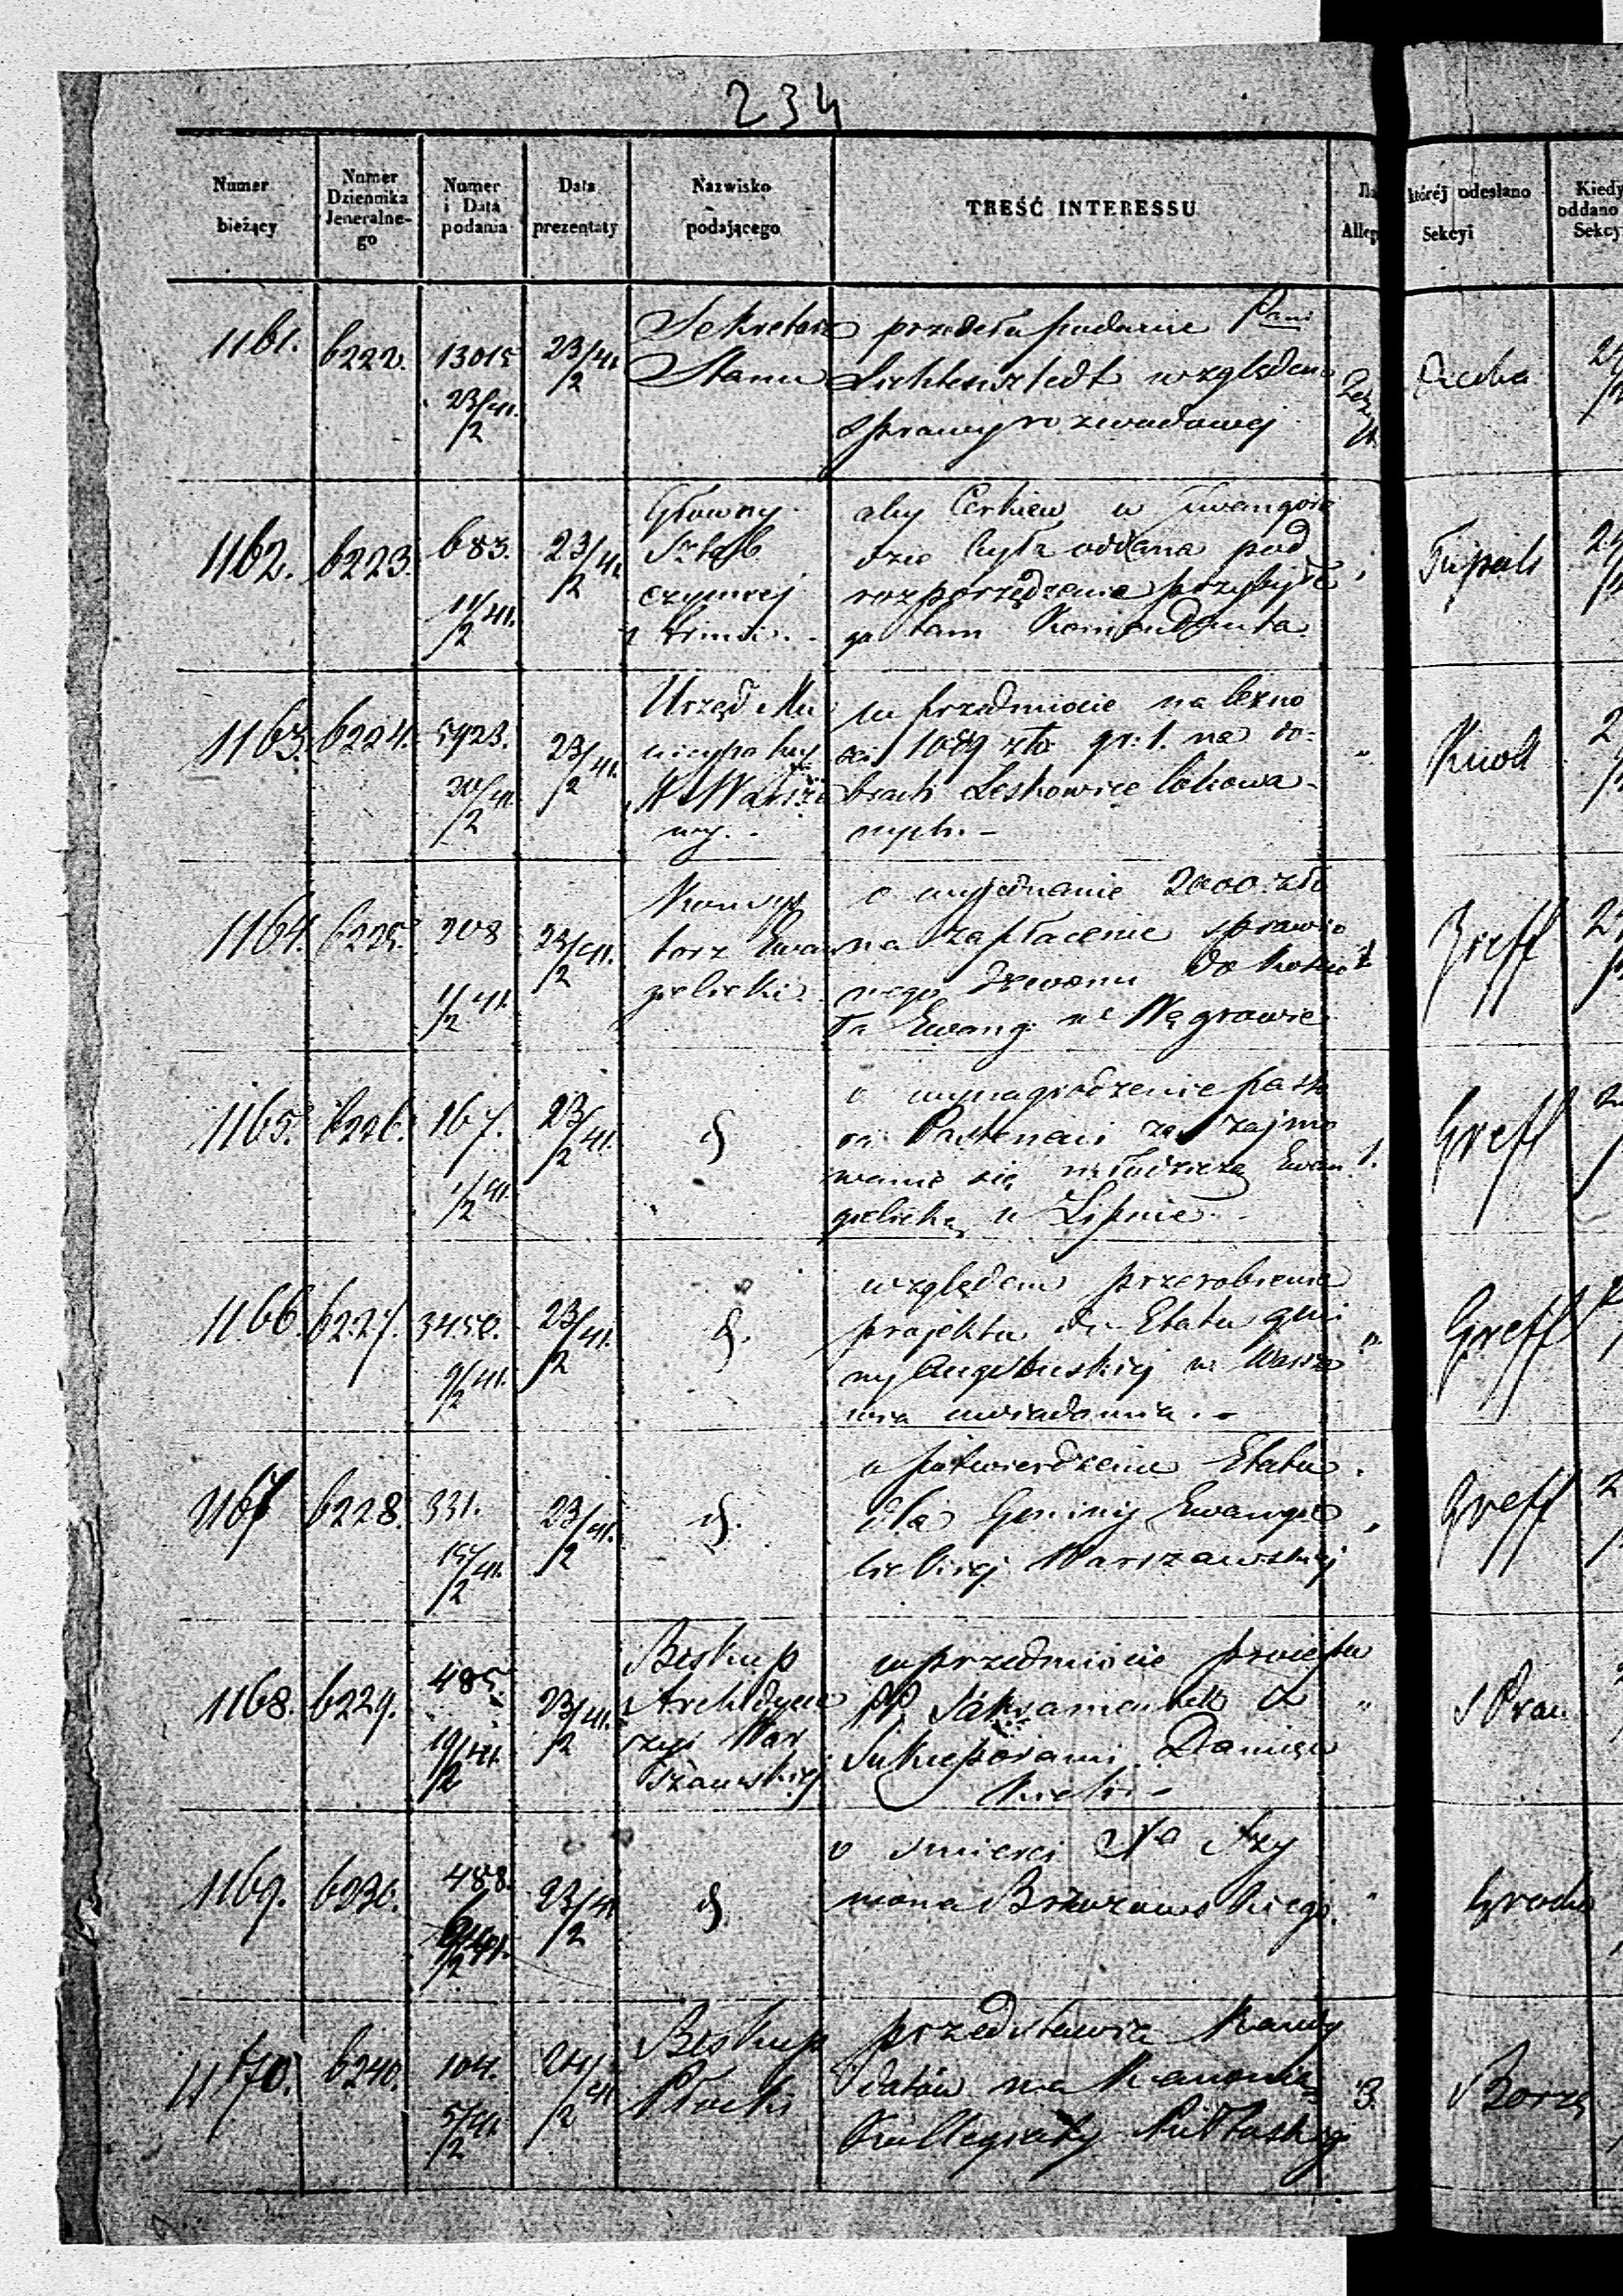 234
Numer bieżący
Numer Dziennika Jeneralne-go
Numer i Data podania
Data prezentaty
Nazwisko podającego
TREŚĆ INTERESSU
której odesłano Sekcyi
Kiedy oddano Sekcy
1161. 6222. 13015 23/41. 2 23/41 2
Sekretarz
Stanu
przesyła podanie Pani
Lichtensztedt względem
sprawy rozwodowej
1162. 6223. 683. 11/41. 2 23/41 2
Główny
Sztab
czynnej
aby Cerkiew w Iwangoro
dzie była oddana pod
rozporządzenie przybyłe
go tam Komendanta
1163. 6224. 5923. 20/41 2 23/41. 2
Urząd Mu
nicypalny
M. Warsza
wy.
w przedmiocie należno
ści 1089 złt gr: 1. na do-
brach Leskowice lokowa-
nych. -
1164. 6225. 208 1/41. 2 23/41. 2
Konsys
torz Ewan
gielicki
o wyjednanie 2000 złt
na zapłacenie sprawio
nego dzwonu do Kościo
ła Ewang: w Węgrowie
Greff
1165. 6226. 167. 1/41. 2 23/41. 2
o wynagrodzenie pasto
ra Pastenaci za zajmo
wanie się młodzieżą Ewan
gielicką w Lipnie.
1.
Greff
1166. 6227. 3450. 9/41. 2 23/41. 2
względem przerobienia
projektu do Etatu gmi
ny Augsburskiej w Warsza
wie uwiadamia. -
Greff
1167 6228. 331. 15/41. 2 23/41. 2
o potwierdzenie Etatu
dla Gminy Ewangie
lickiej Warszawskiej
Greff
1168. 6229. 485. 19/41. 2 23/41. 2
Biskup
Archidyece
zyi War
szawskiej
w przedmiocie
PP. Sakramentek z
Sukcessorami
1169. 6230. 488. 23/41 2
o śmierci Xa Szy
mona Brzozowskiego.
1170. 6240. 104. 5/41. 2 24/41 2
Biskup
Płocki
przedstawia Kandy
datów na Kanonią
Kollegiaty Pułtuskiej
3.